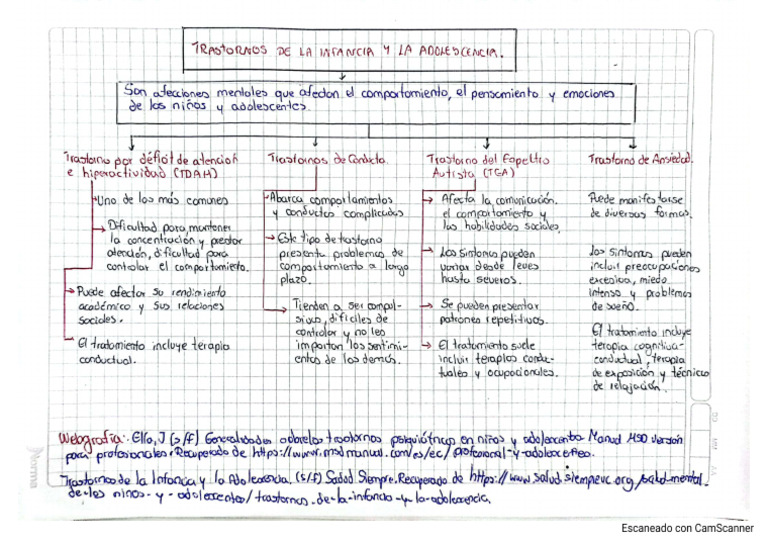 TRASTORNOS DE LA INFANCIA Y LA ADOLESCENCIA.
Son afecciones mentales que afectan el comportamiento, el pensamiento y emociones
de los niños y adolescentes.
Trastorno por déficit de atención
e hiperactividad (TDAH)
Uno de los más comunes
Dificultad para mantener
la concentración y prestar
atención, dificultad para
controlar el comportamiento.
Puede afectar su rendimiento
académico y sus relaciones
sociales.
El tratamiento incluye terapia
conductual.
Trastornos de Conducta.
Abarca comportamientos
y conductas complicadas
Este tipo de trastorno
presenta problemas de
comportamiento a largo
plazo.
Tienden a ser compul-
sivos, difíciles de
controlar y no les
importan los sentimi-
entos de los demás.
Trastorno del Espectro
Autista (TEA)
Afecta la comunicación,
el comportamiento y
las habilidades sociales.
Los Sintomas pueden
variar desde leves
hasta severos.
Se pueden presentar
patrones repetitivos.
El tratamiento suele
incluir terapias condu-
ctuales y ocupacionales.
Trastorno de Ansiedad.
Puede manifestarse
de diversas formas.
Los sintomas pueden
incluir preocupaciones
excesiva, miedo
intenso y problemas
de sueño.
El tratamiento incluye
terapia cognitiva-
conductual, terapia
de exposición y técnicas
de relajación.
Webgrafía: Elia, J (s/f) Generalidades sobre los trastornos psiquiátricos en niños y adolescentes Manual MSD versión
para profesionales. Recuperado de https://www.msdmanual.com/es/ec/profesional-y-adolescentes.
Trastornos de la Infancia y la Adolescencia. (s/f) Salud Siempre. Recuperado de https://www.salud.siempreuc.org/salud-mental-
de-los-ninos-y-adolescentes/trastornos-de-la-infancia-y-la-adolescencia.
Norma
Escaneado con CamScanner